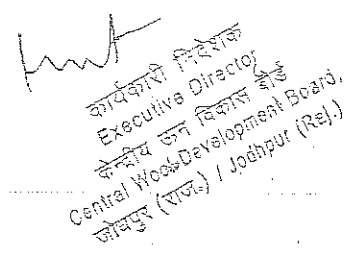 कार्यकारी निदेशक
Executive Director
केन्द्रीय ऊन विकास बोर्ड
Central Wool Development Board,
जोधपुर (राज.) / Jodhpur (Raj.)